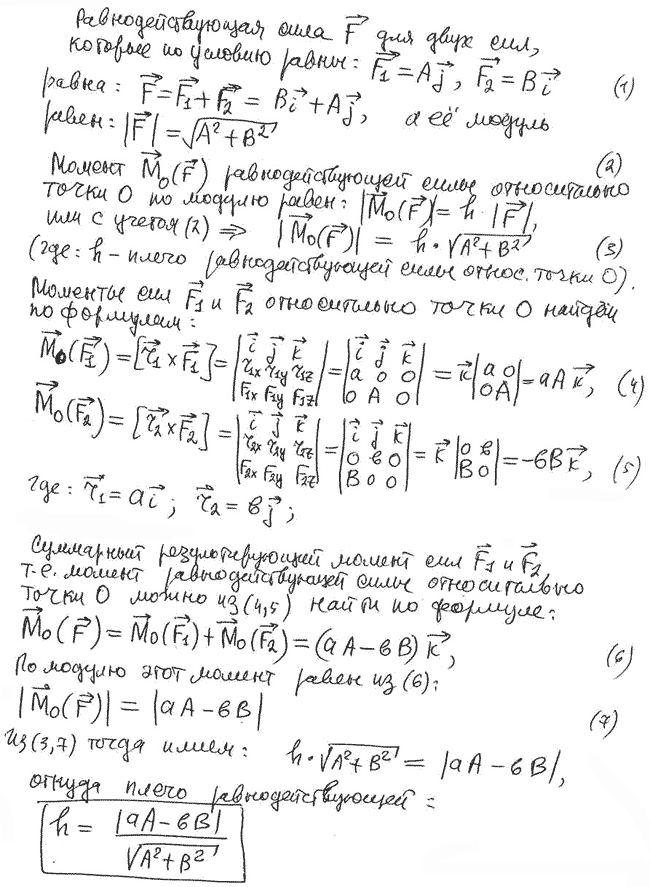 Равнодействующая сила F⃗ для двух сил,
которые по условию равны: F⃗₁ = Aj⃗, F⃗₂ = Bi⃗ (1)
равна: F⃗ = F⃗₁ + F⃗₂ = Bi⃗ + Aj⃗, а её модуль
равен: |F⃗| = √(A² + B²) (2)
Момент M⃗₀(F⃗) равнодействующей силы относительно
точки O по модулю равен: |M⃗₀(F⃗)| = h · |F⃗|,
или с учетом (2) ⇒ |M⃗₀(F⃗)| = h · √(A² + B²) (3)
(где: h – плечо равнодействующей силы относ. точки O).
Моменты сил F⃗₁ и F⃗₂ относительно точки O найдём
по формулам:
M⃗₀(F⃗₁) = [r⃗₁ × F⃗₁] = |i⃗ j⃗ k⃗; r₁ₓ r₁y r₁z; F₁ₓ F₁y F₁z| = |i⃗ j⃗ k⃗; a 0 0; 0 A 0| = k⃗ |a 0; 0 A| = aA k⃗, (4)
M⃗₀(F⃗₂) = [r⃗₂ × F⃗₂] = |i⃗ j⃗ k⃗; r₂ₓ r₂y r₂z; F₂ₓ F₂y F₂z| = |i⃗ j⃗ k⃗; 0 в 0; B 0 0| = k⃗ |0 в; B 0| = -вB k⃗, (5)
где: r⃗₁ = ai⃗; r⃗₂ = вj⃗;
Суммарный результирующей момент сил F⃗₁ и F⃗₂,
т.е. момент равнодействующей силы относительно
точки O можно из (4,5) найти по формуле:
M⃗₀(F⃗) = M⃗₀(F⃗₁) + M⃗₀(F⃗₂) = (aA – вB) k⃗, (6)
По модулю этот момент равен из (6):
|M⃗₀(F⃗)| = |aA – вB| (7)
Из (3,7) тогда имеем: h · √(A² + B²) = |aA – вB|,
откуда плечо равнодействующей:
h = |aA – вB| / √(A² + B²)